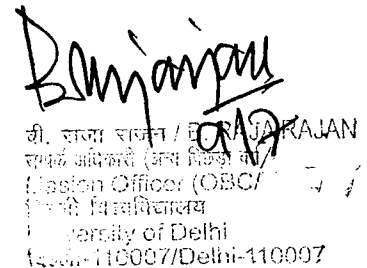 बी. राजा राजन / B. RAJA RAJAN
सम्पर्क अधिकारी (अन्य पिछड़ा वर्ग/
Liaison Officer (OBC/
विश्वविद्यालय
University of Delhi
110007/Delhi-110007